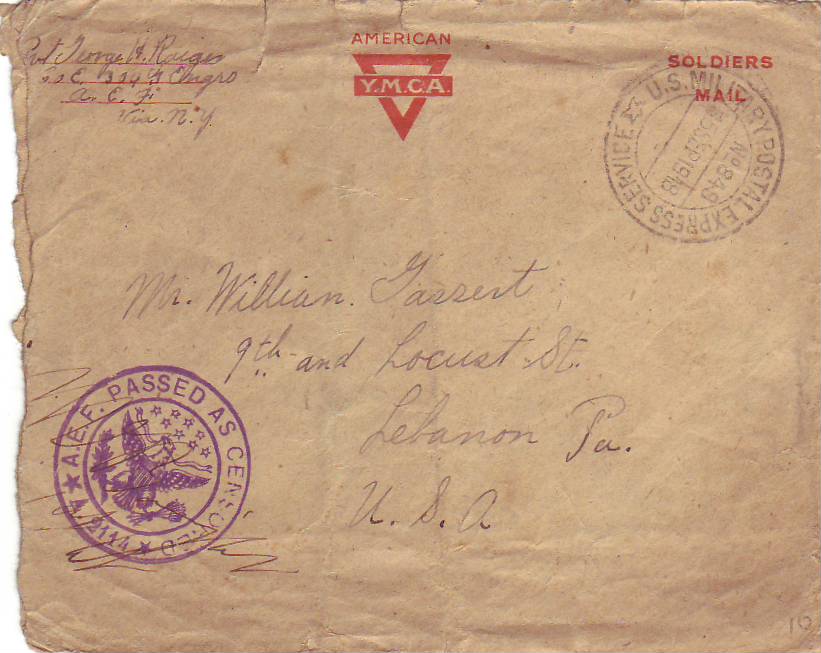 Pvt George H. Raiger
Co E, 304th Engrs
A. E. F.
Via. N.Y.
AMERICAN
Y.M.C.A.
SOLDIERS
MAIL
U.S. MILITARY POSTAL EXPRESS SERVICE
No 849
SEP 1918
Mr. Willian. Gassert
9th and Locust St.
Lebanon Pa.
U. S. A
A.E.F. PASSED AS CENSORED
A. 2111
10